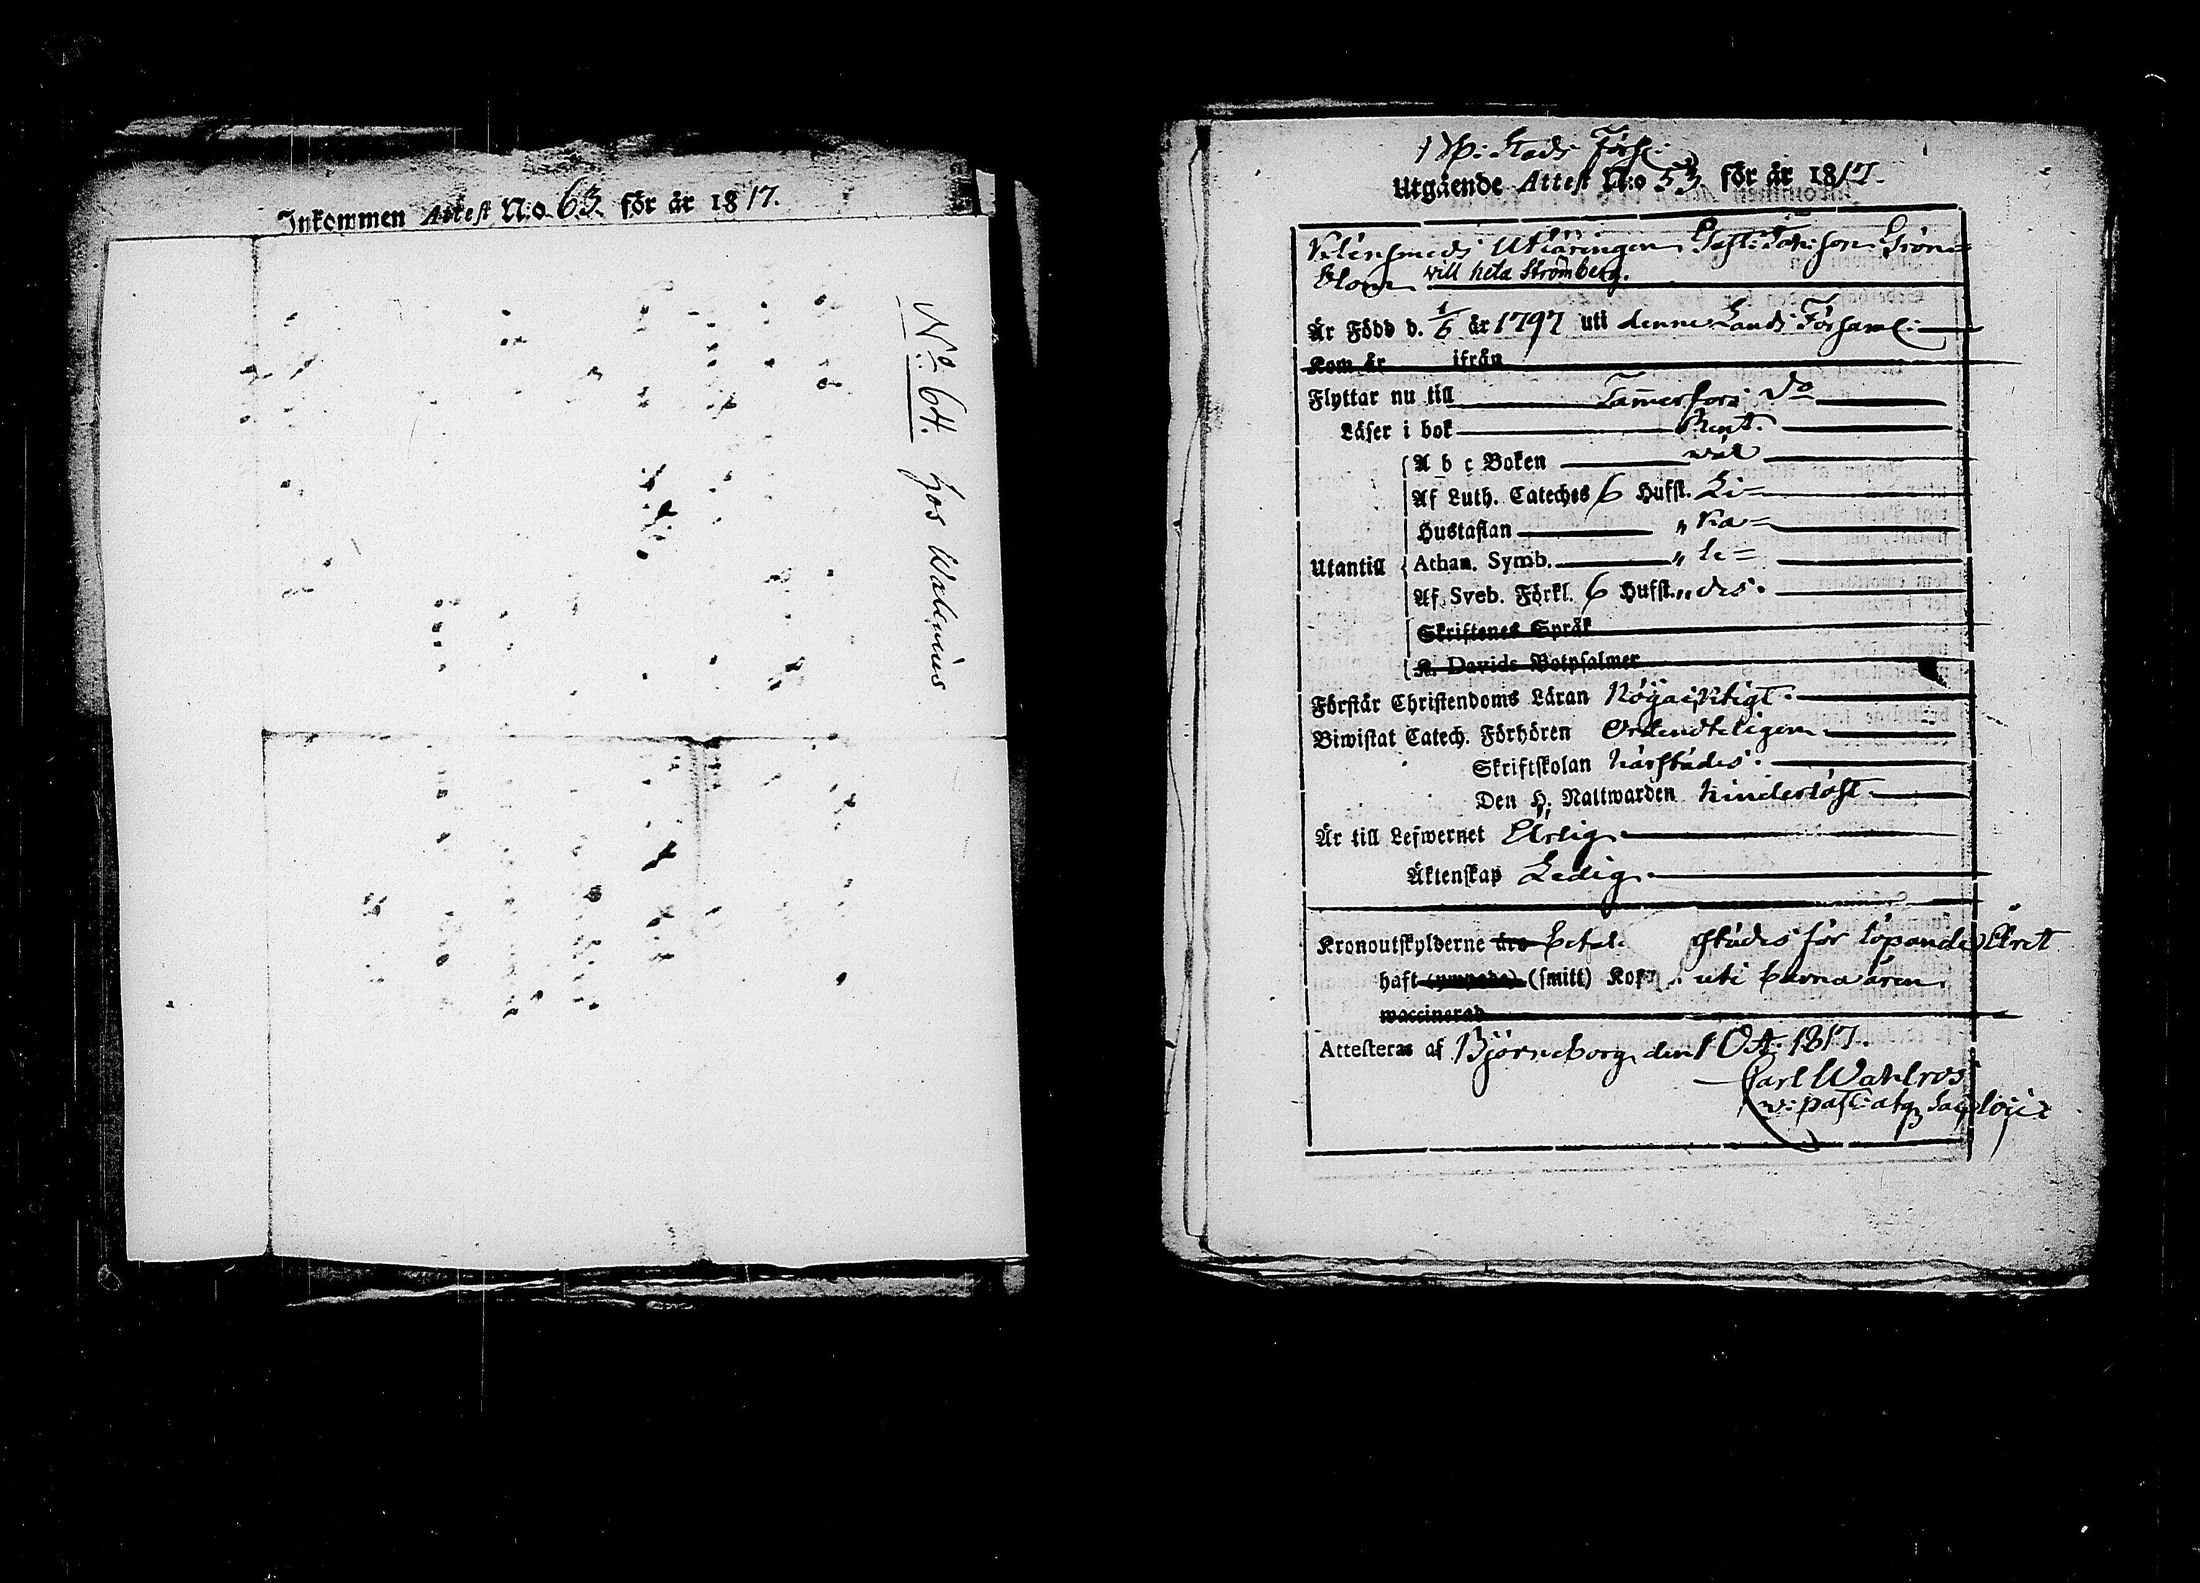 Inkommen Attest N:o 63. för år 1817.
N:o 64. hos Walenius
Stads Förs:
Utgående Attest N:o 53. för år 1817.
Utläringen Grön=
blom will heta Strömberg.
Är Född d. 1/6 år 1797 uti denne Lands Församl:
Kom år ifrån
Flyttar nu till Tam̄erfors Do
Läser i bok Rent.
A b c Boken wäl
Af Luth. Cateches 6 Hufst. Li=
Hustaflan " ka=
Utantill Athan. Symb. " le=
Af Sveb. Förkl. 6 Hufst. " des.
Skriftenes Språk
K. Davids Botpsalmer
Förstår Christendoms Läran Nöyaktigt.
Biwistat Catech. Förhören Ordendteligen
Skriftskolan härstädes.
Den H. Nattwarden hinderlöst
Är till Lefwernet Ärlig
Äktenskap Ledig.
Kronoutskylderne äro städes för löpande Året
haft (ympade) (smitt) uti barna åren.
waccinerad
Attesteras af Björneborg den 1 Oct. 1817.
Carl Wahlros